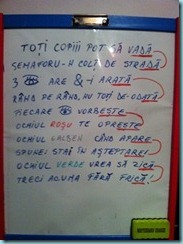 TOȚI COPIII POT SĂ VADĂ
SEMAFORU-N COLȚ DE STRADĂ
3 ARE & -I ARATĂ
RÂND PE RÂND, NU TOȚI DE-ODATĂ
FIECARE VORBEȘTE
OCHIUL ROȘU TE OPREȘTE
OCHIUL GALBEN CÂND APARE
SPUNE: STAI ÎN AȘTEPTARE!
OCHIUL VERDE VREA SĂ ZICĂ
TRECI ACUMA FĂRĂ FRICĂ!